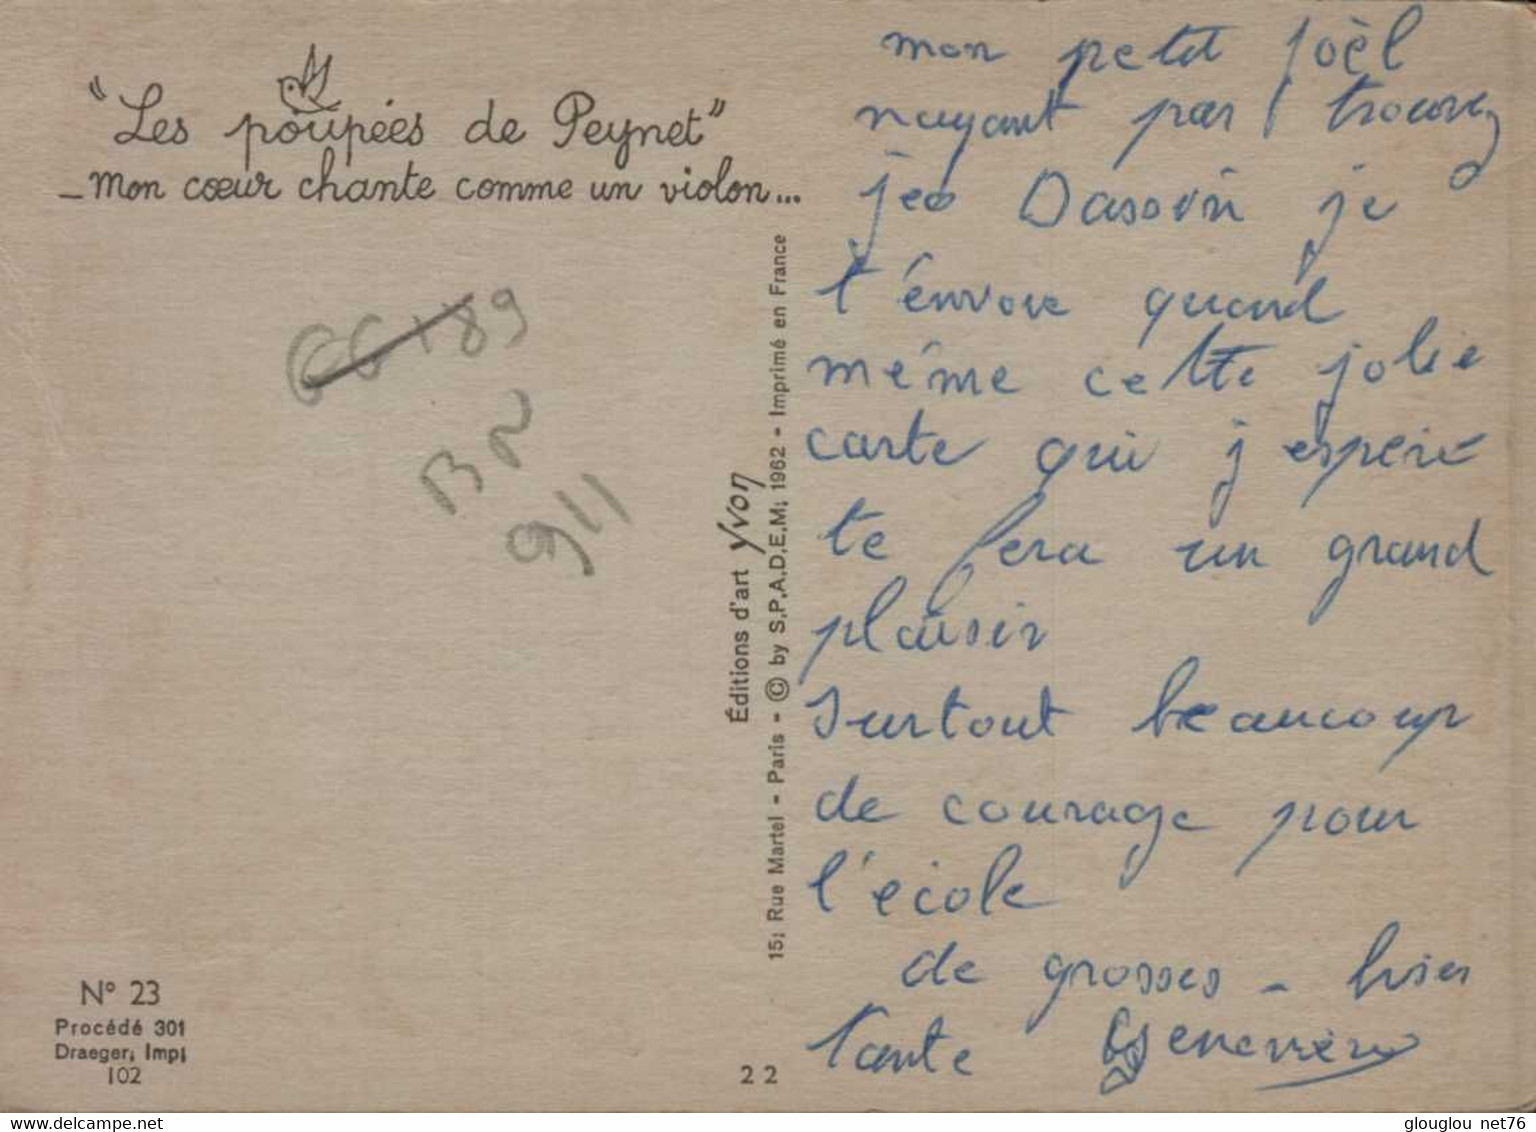 "Les poupées de Peynet"
_ mon cœur chante comme un violon...
mon petit joël
nayant pas trouvez
jeo Dassin je
t'envoie quand
même cette jolie
carte qui j espere
te fera un grand
plaisir
surtout beaucoup
de courage pour
l'ecole
de grosses - bises
Tante Genevieve
66 + 89
BN
94
Éditions d'art Yvon
15, Rue Martel - Paris - © by S.P.A.D.E.M. 1962 - Imprimé en France
N° 23
Procédé 301
Draeger, Imp.
102
22
www.delcampe.net
glouglou net76